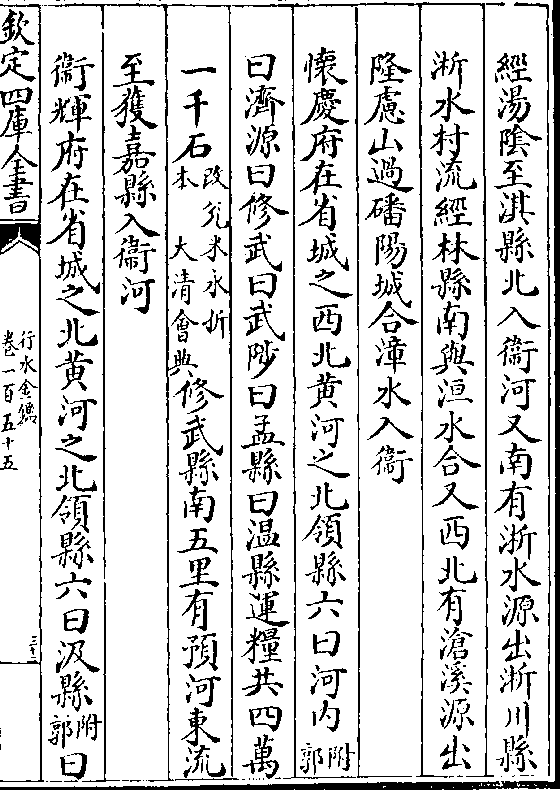 經湯隂至淇縣北入衞河又南有淅水源出淅川縣
淅水村流經林縣南與洹水合又西北有滄溪源出
隆慮山過磻陽城合漳水入衞
懐慶府在省城之西北黄河之北領縣六曰河内附郭
曰濟源曰修武曰武陟曰孟縣曰温縣運糧共四萬
一千石改兊米永折本大清會典修武縣南五里有預河東流
至獲嘉縣入衞河
衞輝府在省城之北黄河之北領縣六曰汲縣附郭曰
欽定四庫全書
行水金鑑
卷一百五十五